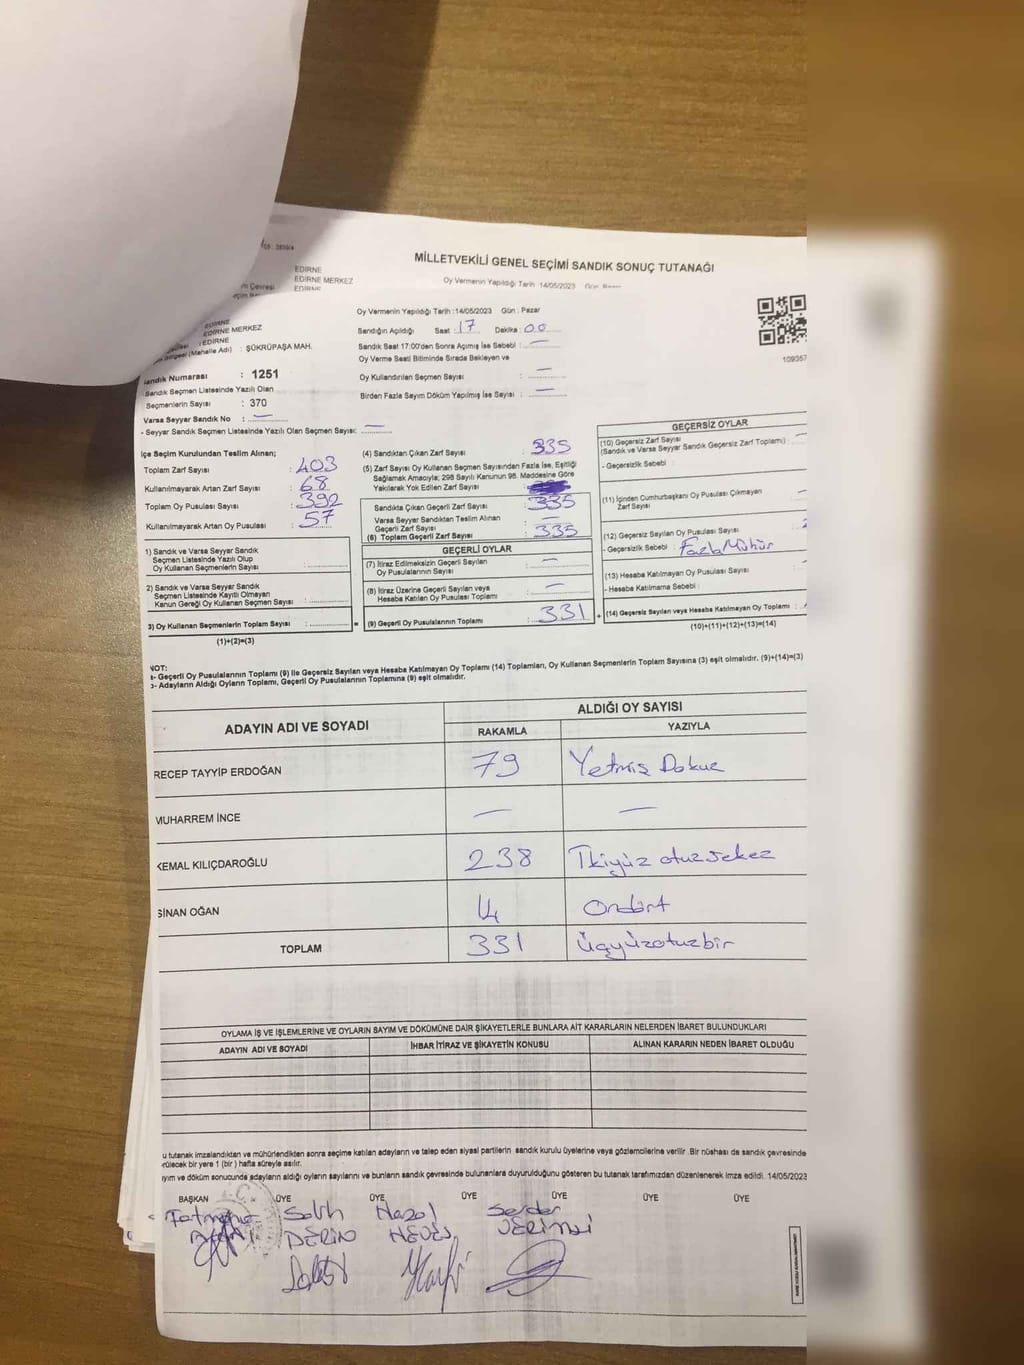 MİLLETVEKİLİ GENEL SEÇİMİ SANDIK SONUÇ TUTANAĞI
EDİRNE
EDİRNE MERKEZ
EDİRNE
Oy Vermenin Yapıldığı Tarih 14/05/2023
Oy Vermenin Yapıldığı Tarih :14/05/2023 Gün : Pazar
EDİRNE MERKEZ
: EDİRNE
(Mahalle Adı) : ŞÜKRÜPAŞA MAH.
Sandığın Açıldığı Saat : 17 Dakika : 00
Sandık Saat 17:00'den Sonra Açımış İse Sebebi : —
Oy Verme Saati Bitiminde Sırada Bekleyen ve
Oy Kullandırılan Seçmen Sayısı : —
Birden Fazla Sayım Döküm Yapılmış İse Sayısı : —
109357
Sandık Numarası : 1251
Sandık Seçmen Listesinde Yazılı Olan
Seçmenlerin Sayısı : 370
Varsa Seyyar Sandık No : —
- Seyyar Sandık Seçmen Listesinde Yazılı Olan Seçmen Sayısı: —
İlçe Seçim Kurulundan Teslim Alınan;
Toplam Zarf Sayısı : 403
Kullanılmayarak Artan Zarf Sayısı : 68
Toplam Oy Pusulası Sayısı : 392
Kullanılmayarak Artan Oy Pusulası : 57
1) Sandık ve Varsa Seyyar Sandık
Seçmen Listesinde Yazılı Olup
Oy Kullanan Seçmenlerin Sayısı :
2) Sandık ve Varsa Seyyar Sandık
Seçmen Listesinde Kayıtlı Olmayan
Kanun Gereği Oy Kullanan Seçmen Sayısı :
3) Oy Kullanan Seçmenlerin Toplam Sayısı :
(1)+(2)=(3)
(4) Sandıktan Çıkan Zarf Sayısı : 335
(5) Zarf Sayısı Oy Kullanan Seçmen Sayısından Fazla İse, Eşitliği
Sağlamak Amacıyla; 298 Sayılı Kanunun 98. Maddesine Göre
Yakılarak Yok Edilen Zarf Sayısı :
Sandıkta Çıkan Geçerli Zarf Sayısı : 335
Varsa Seyyar Sandıktan Teslim Alınan
Geçerli Zarf Sayısı : —
(6) Toplam Geçerli Zarf Sayısı : 335
GEÇERLİ OYLAR
(7) İtiraz Edilmeksizin Geçerli Sayılan
Oy Pusulalarının Sayısı : —
(8) İtiraz Üzerine Geçerli Sayılan veya
Hesaba Katılan Oy Pusulası Toplamı : —
(9) Geçerli Oy Pusulalarının Toplamı : 331
GEÇERSİZ OYLAR
(10) Geçersiz Zarf Sayısı
(Sandık ve Varsa Seyyar Sandık Geçersiz Zarf Toplamı) :
- Geçersizlik Sebebi :
(11) İçinden Cumhurbaşkanı Oy Pusulası Çıkmayan
Zarf Sayısı
(12) Geçersiz Sayılan Oy Pusulası Sayısı :
- Geçersizlik Sebebi : Fazla Mühür
(13) Hesaba Katılmayan Oy Pusulası Sayısı :
- Hesaba Katılmama Sebebi :
(14) Geçersiz Sayılan veya Hesaba Katılmayan Oy Toplamı :
(10)+(11)+(12)+(13)=(14)
NOT:
- Geçerli Oy Pusulalarının Toplamı (9) ile Geçersiz Sayılan veya Hesaba Katılmayan Oy Toplamı (14) Toplamları, Oy Kullanan Seçmenlerin Toplam Sayısına (3) eşit olmalıdır. (9)+(14)=(3)
- Adayların Aldığı Oyların Toplamı, Geçerli Oy Pusulalarının Toplamına (9) eşit olmalıdır.
ADAYIN ADI VE SOYADI
ALDIĞI OY SAYISI
RAKAMLA YAZIYLA
RECEP TAYYİP ERDOĞAN 79 Yetmiş Dokuz
MUHARREM İNCE — —
KEMAL KILIÇDAROĞLU 238 İkiyüz otuz sekez
SİNAN OĞAN 14 Ondört
TOPLAM 331 Üçyüzotuzbir
OYLAMA İŞ VE İŞLEMLERİNE VE OYLARIN SAYIM VE DÖKÜMÜNE DAİR ŞİKAYETLERLE BUNLARA AİT KARARLARIN NELERDEN İBARET BULUNDUKLARI
ADAYIN ADI VE SOYADI İHBAR İTİRAZ VE ŞİKAYETİN KONUSU ALINAN KARARIN NEDEN İBARET OLDUĞU
u tutanak imzalandıktan ve mühürlendikten sonra seçime katılan adayların ve talep eden siyasi partilerin sandık kurulu üyelerine veya gözlemcilerine verilir .Bir nüshası da sandık çevresinde
bir yere 1 (bir ) hafta süreyle asılır.
ve döküm sonucunda adayların aldığı oyların sayılarını ve bunların sandık çevresinde bulunanlara duyurulduğunu gösteren bu tutanak tarafımızdan düzenlenerek imza edildi. 14/05/2023
BAŞKAN ÜYE ÜYE ÜYE ÜYE ÜYE ÜYE
Salih Hazal Serdar
DERİN